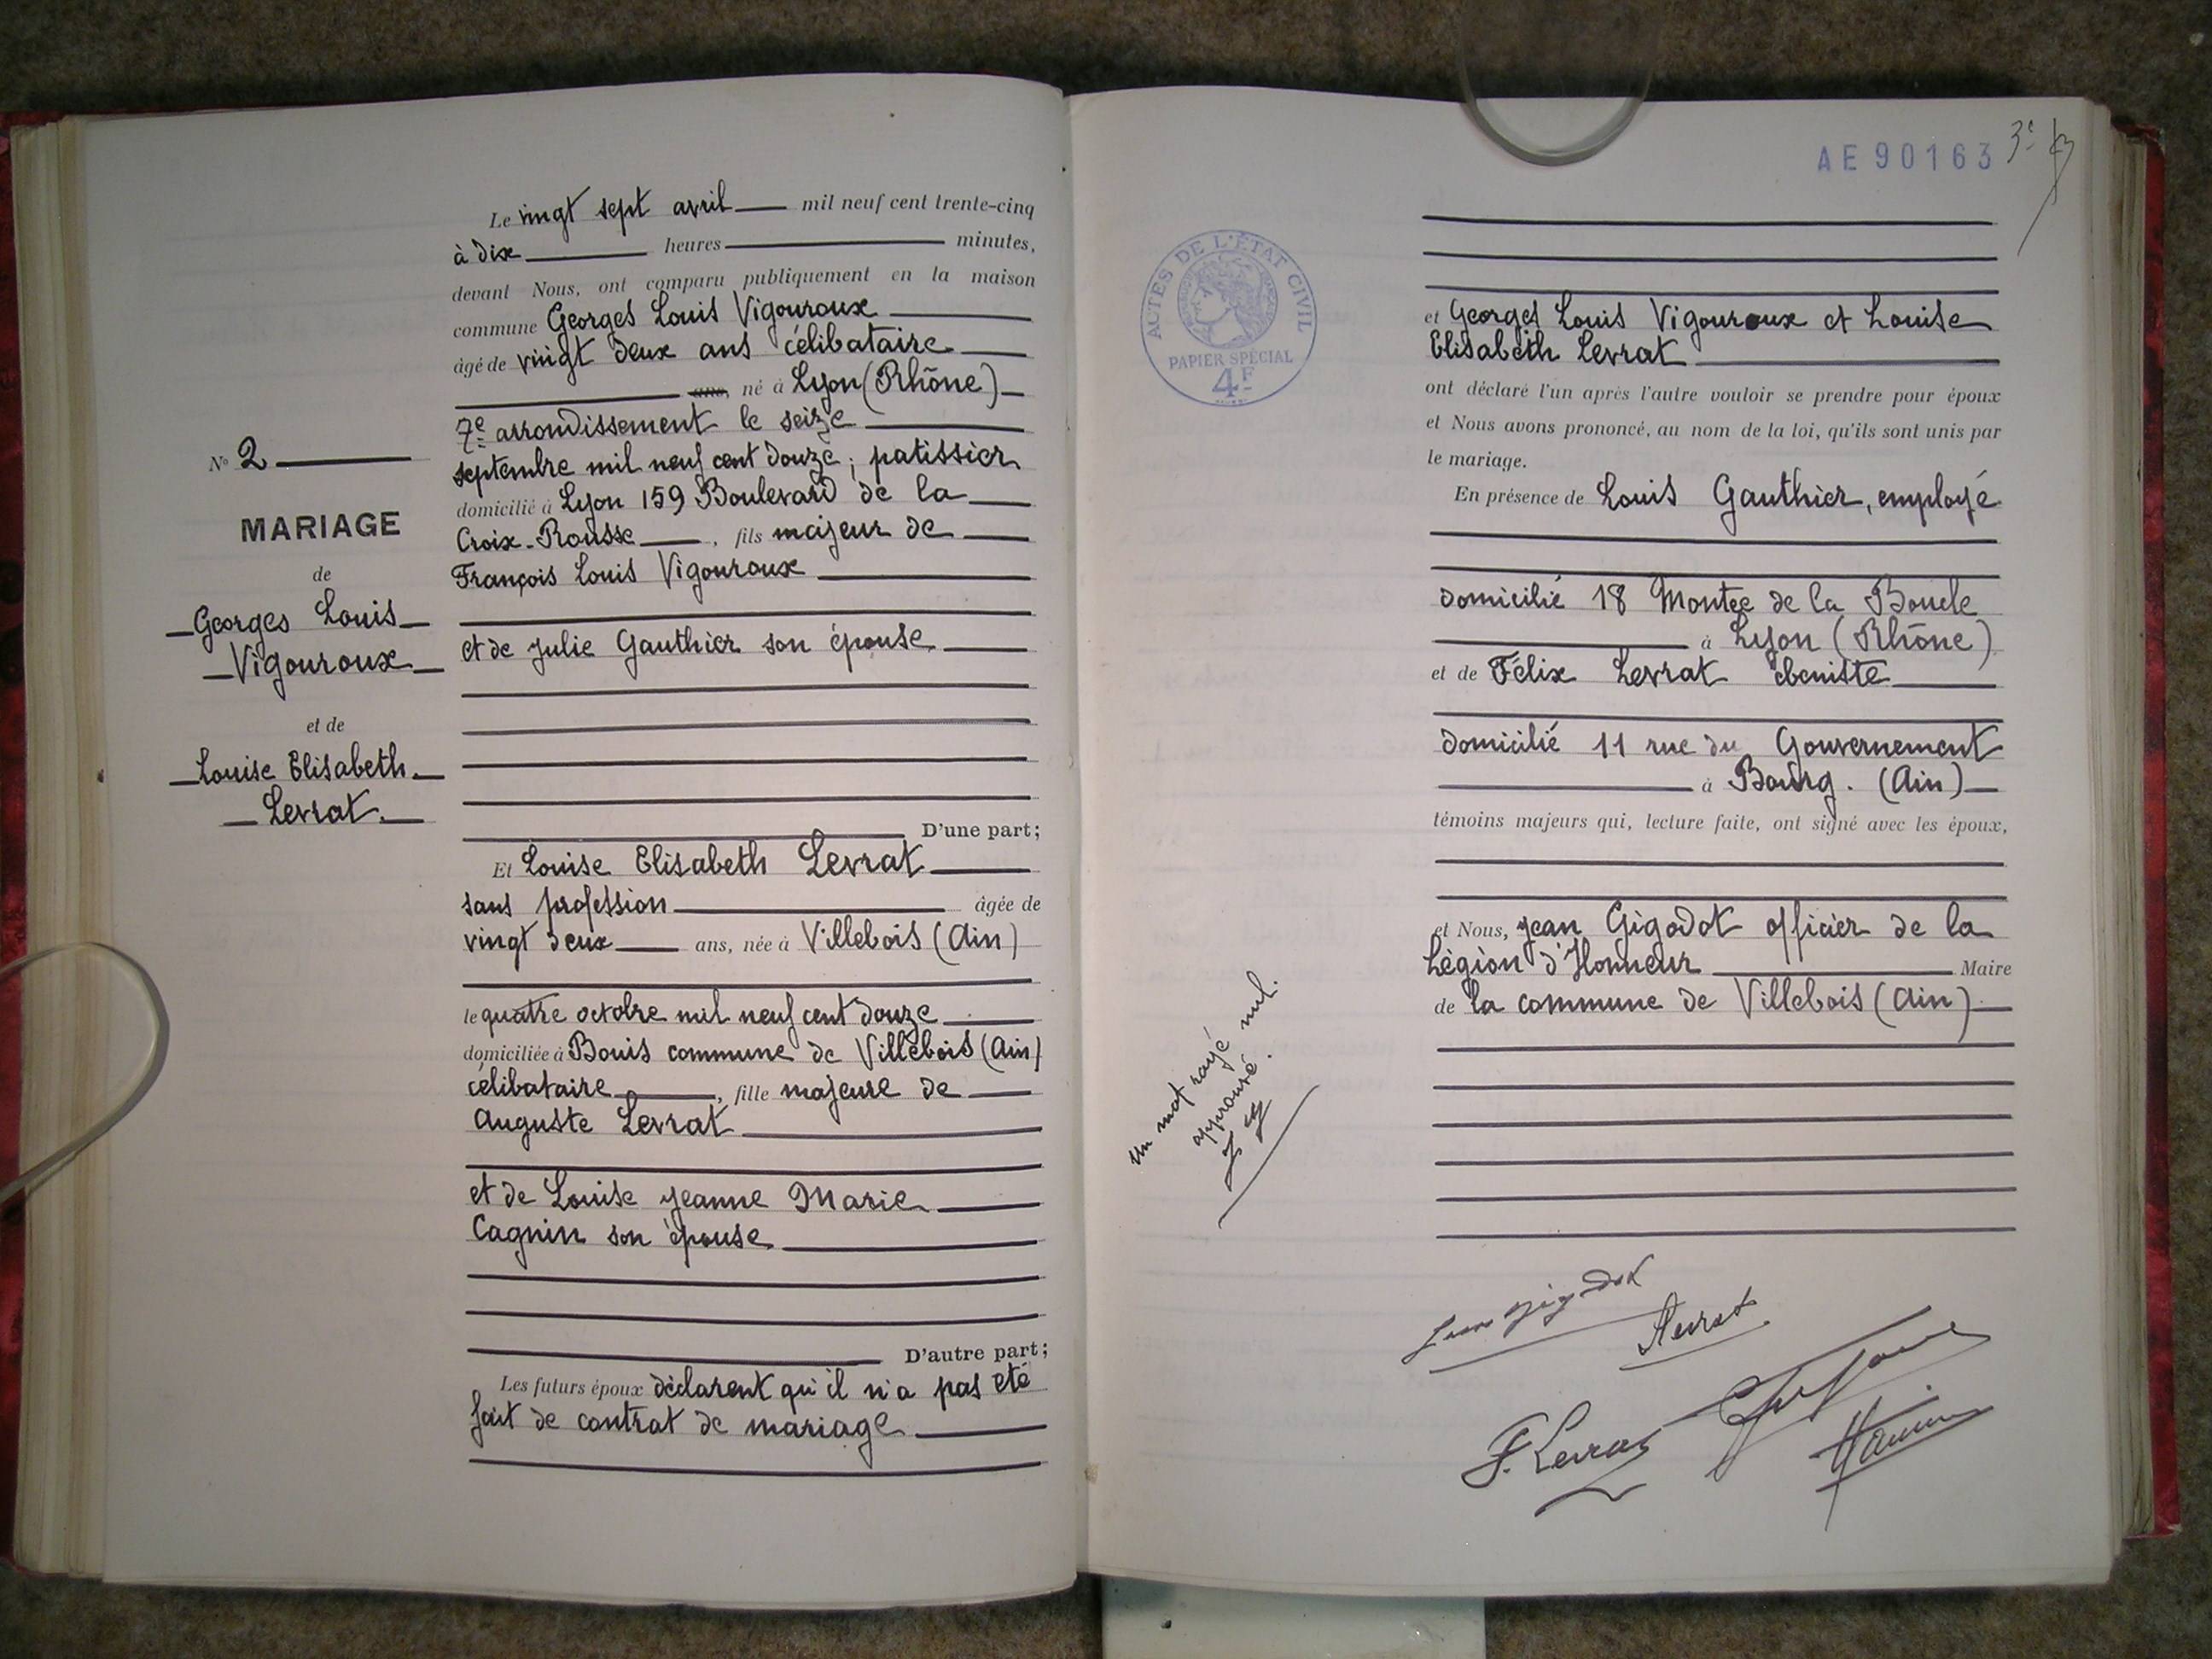 Le vingt sept avril mil neuf cent trente-cinq
à dix heures minutes,
devant Nous, ont comparu publiquement en la maison
commune Georges Louis Vigouroux
âgé de vingt deux ans célibataire
ans, né à Lyon (Rhône)
7e arrondissement le seize
septembre mil neuf cent douze ; patissier
domicilié à Lyon 159 Boulevard de la
Croix-Rousse , fils majeur de
François Louis Vigouroux
et de Julie Gauthier son épouse
D'une part ;
Et Louise Elisabeth Levrat
sans profession âgée de
vingt deux ans, née à Villebois (Ain)
le quatre octobre mil neuf cent douze
domiciliée à Bouis commune de Villebois (Ain)
célibataire , fille majeure de
Auguste Levrat
et de Louise Jeanne Marie
Cagnin son épouse
D'autre part ;
Les futurs époux déclarent qu'il n'a pas eté
fait de contrat de mariage
N° 2
MARIAGE
de
Georges Louis
Vigouroux
et de
Louise Elisabeth
Levrat.
AE 90163
3e
ACTES DE L'ÉTAT CIVIL
PAPIER SPÉCIAL
4F
et Georges Louis Vigouroux et Louise
Elisabeth Levrat
ont déclaré l'un après l'autre vouloir se prendre pour époux
et Nous avons prononcé, au nom de la loi, qu'ils sont unis par
le mariage.
En présence de Louis Gauthier, employé
domicilié 18 Montee de la Boucle
à Lyon (Rhône)
et de Félix Levrat ebeniste
domicilié 11 rue du Gouvernement
à Bourg. (Ain)
témoins majeurs qui, lecture faite, ont signé avec les époux,
et Nous, Jean Gigodot officier de la
Légion d'Honneur Maire
de la commune de Villebois (Ain)
Un mot rayé nul.
approuvé.
J G
Jean Gigodot
Levrat
F. Levrat